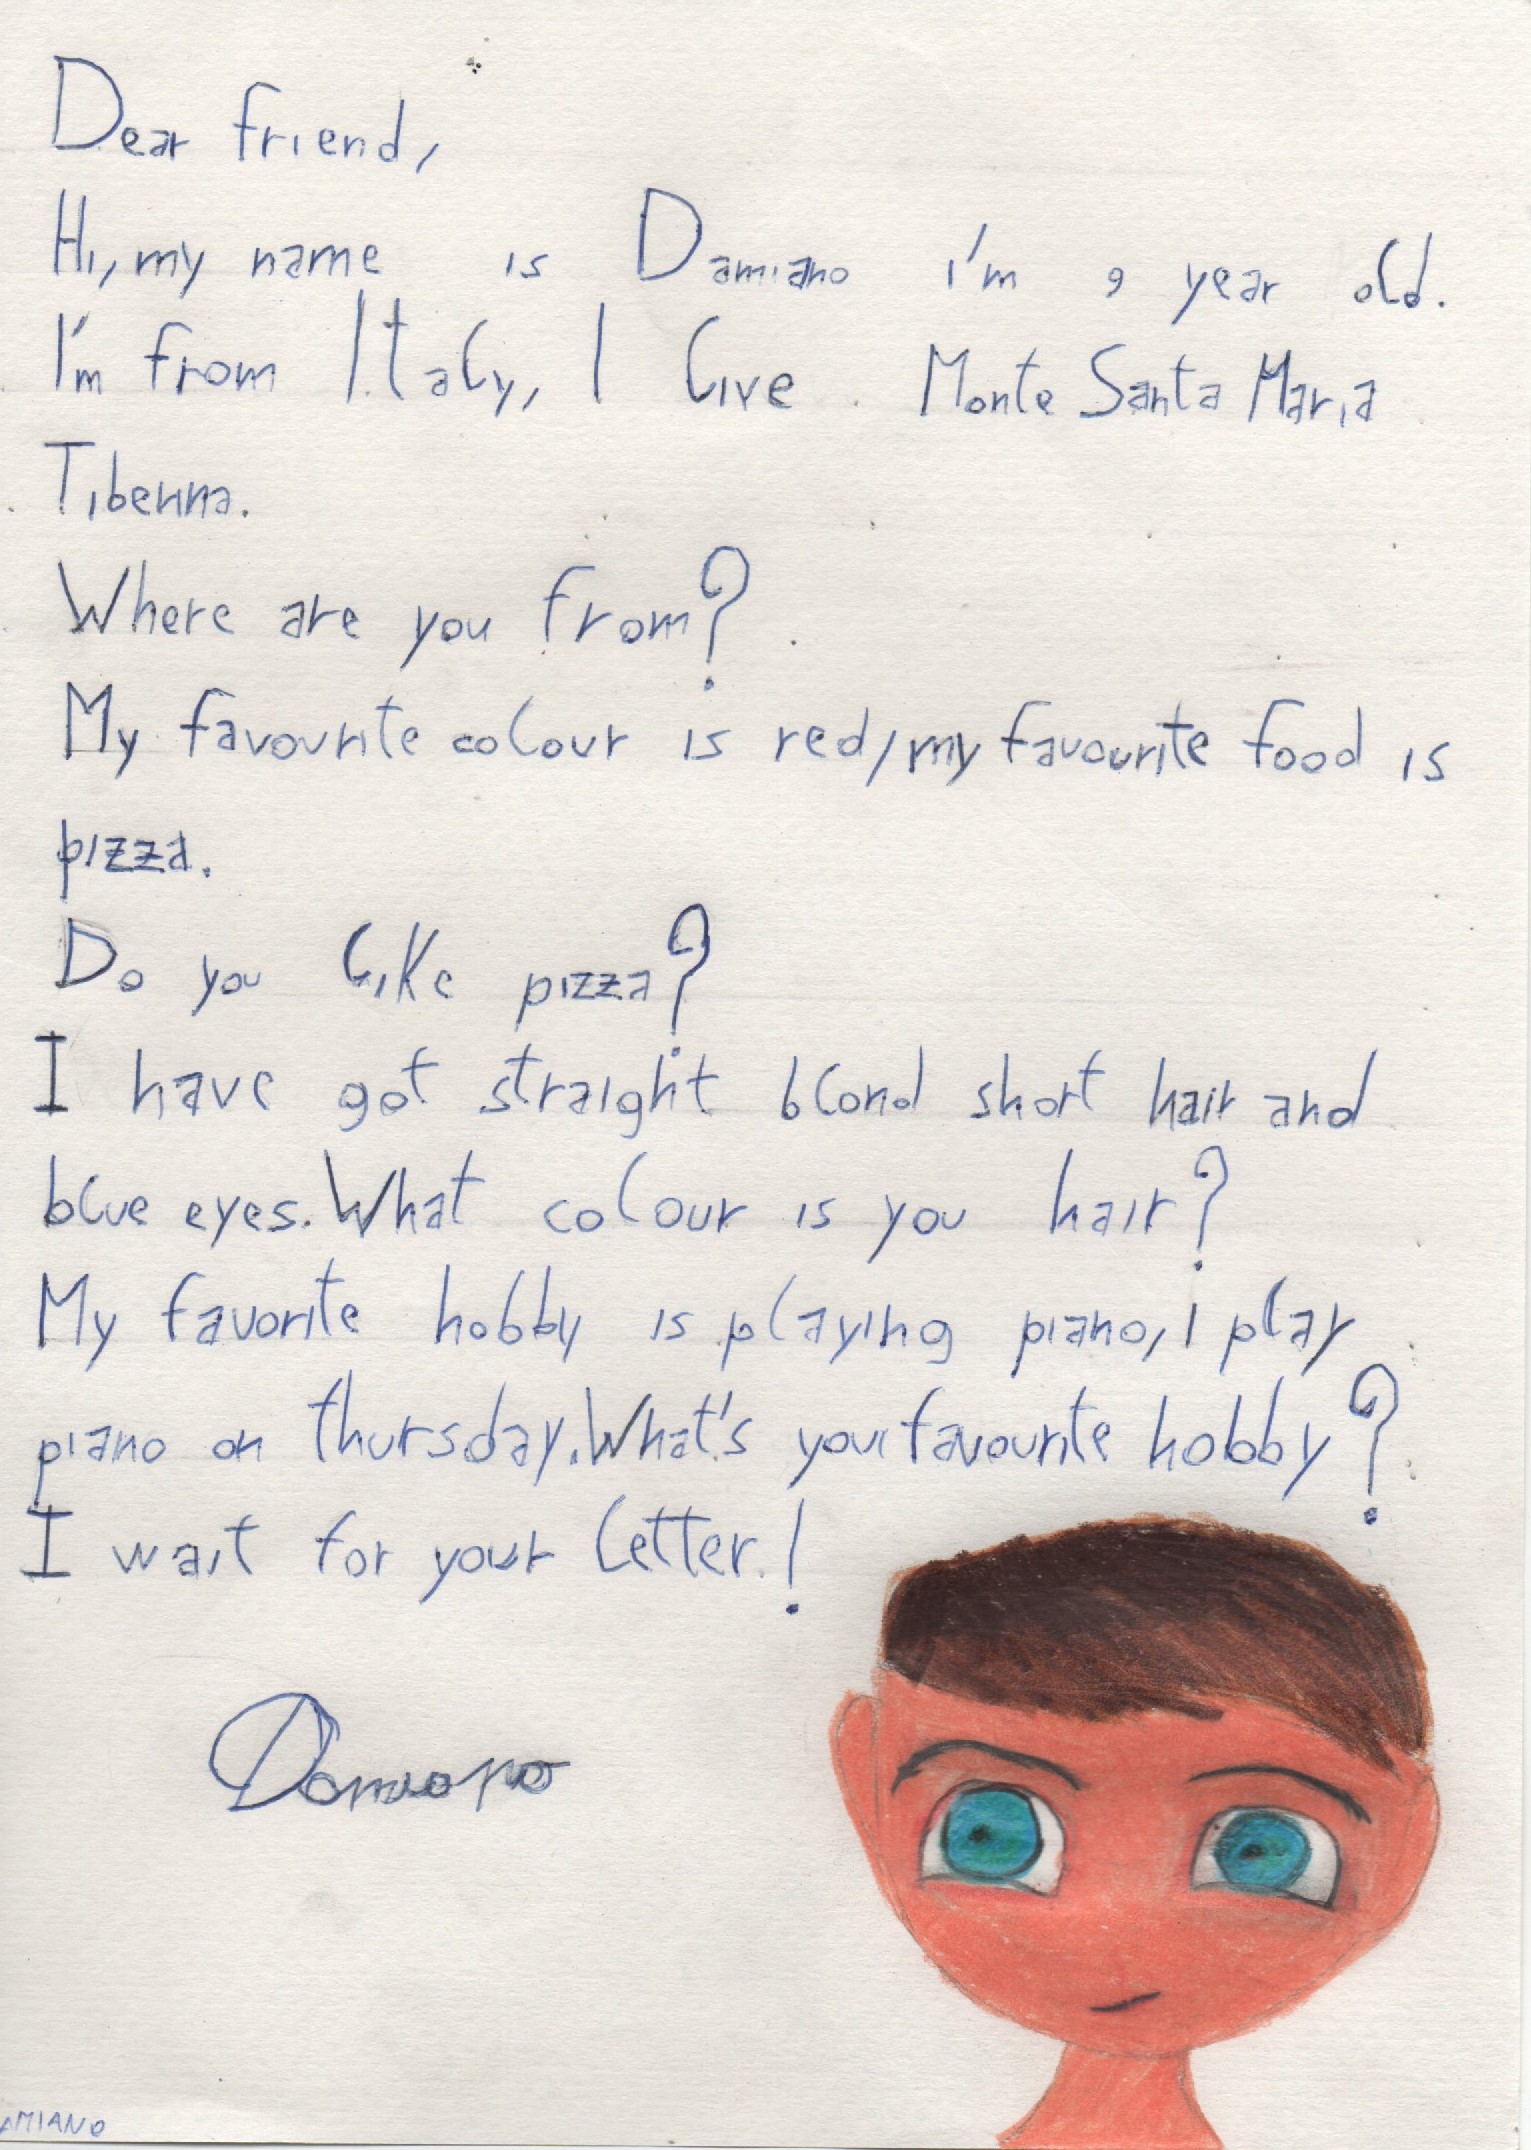 Dear friend,
Hi, my name is Damiano i'm 9 year old.
I'm from Italy, I live Monte Santa Maria
Tiberina.
Where are you from?
My favourite colour is red, my favourite food is
pizza.
Do you like pizza?
I have got straight blond short hair and
blue eyes. What colour is you hair?
My favorite hobby is playing piano, I play
piano on thursday. What's your favourite hobby?
I wait for your letter!
Damiano
AMIANO